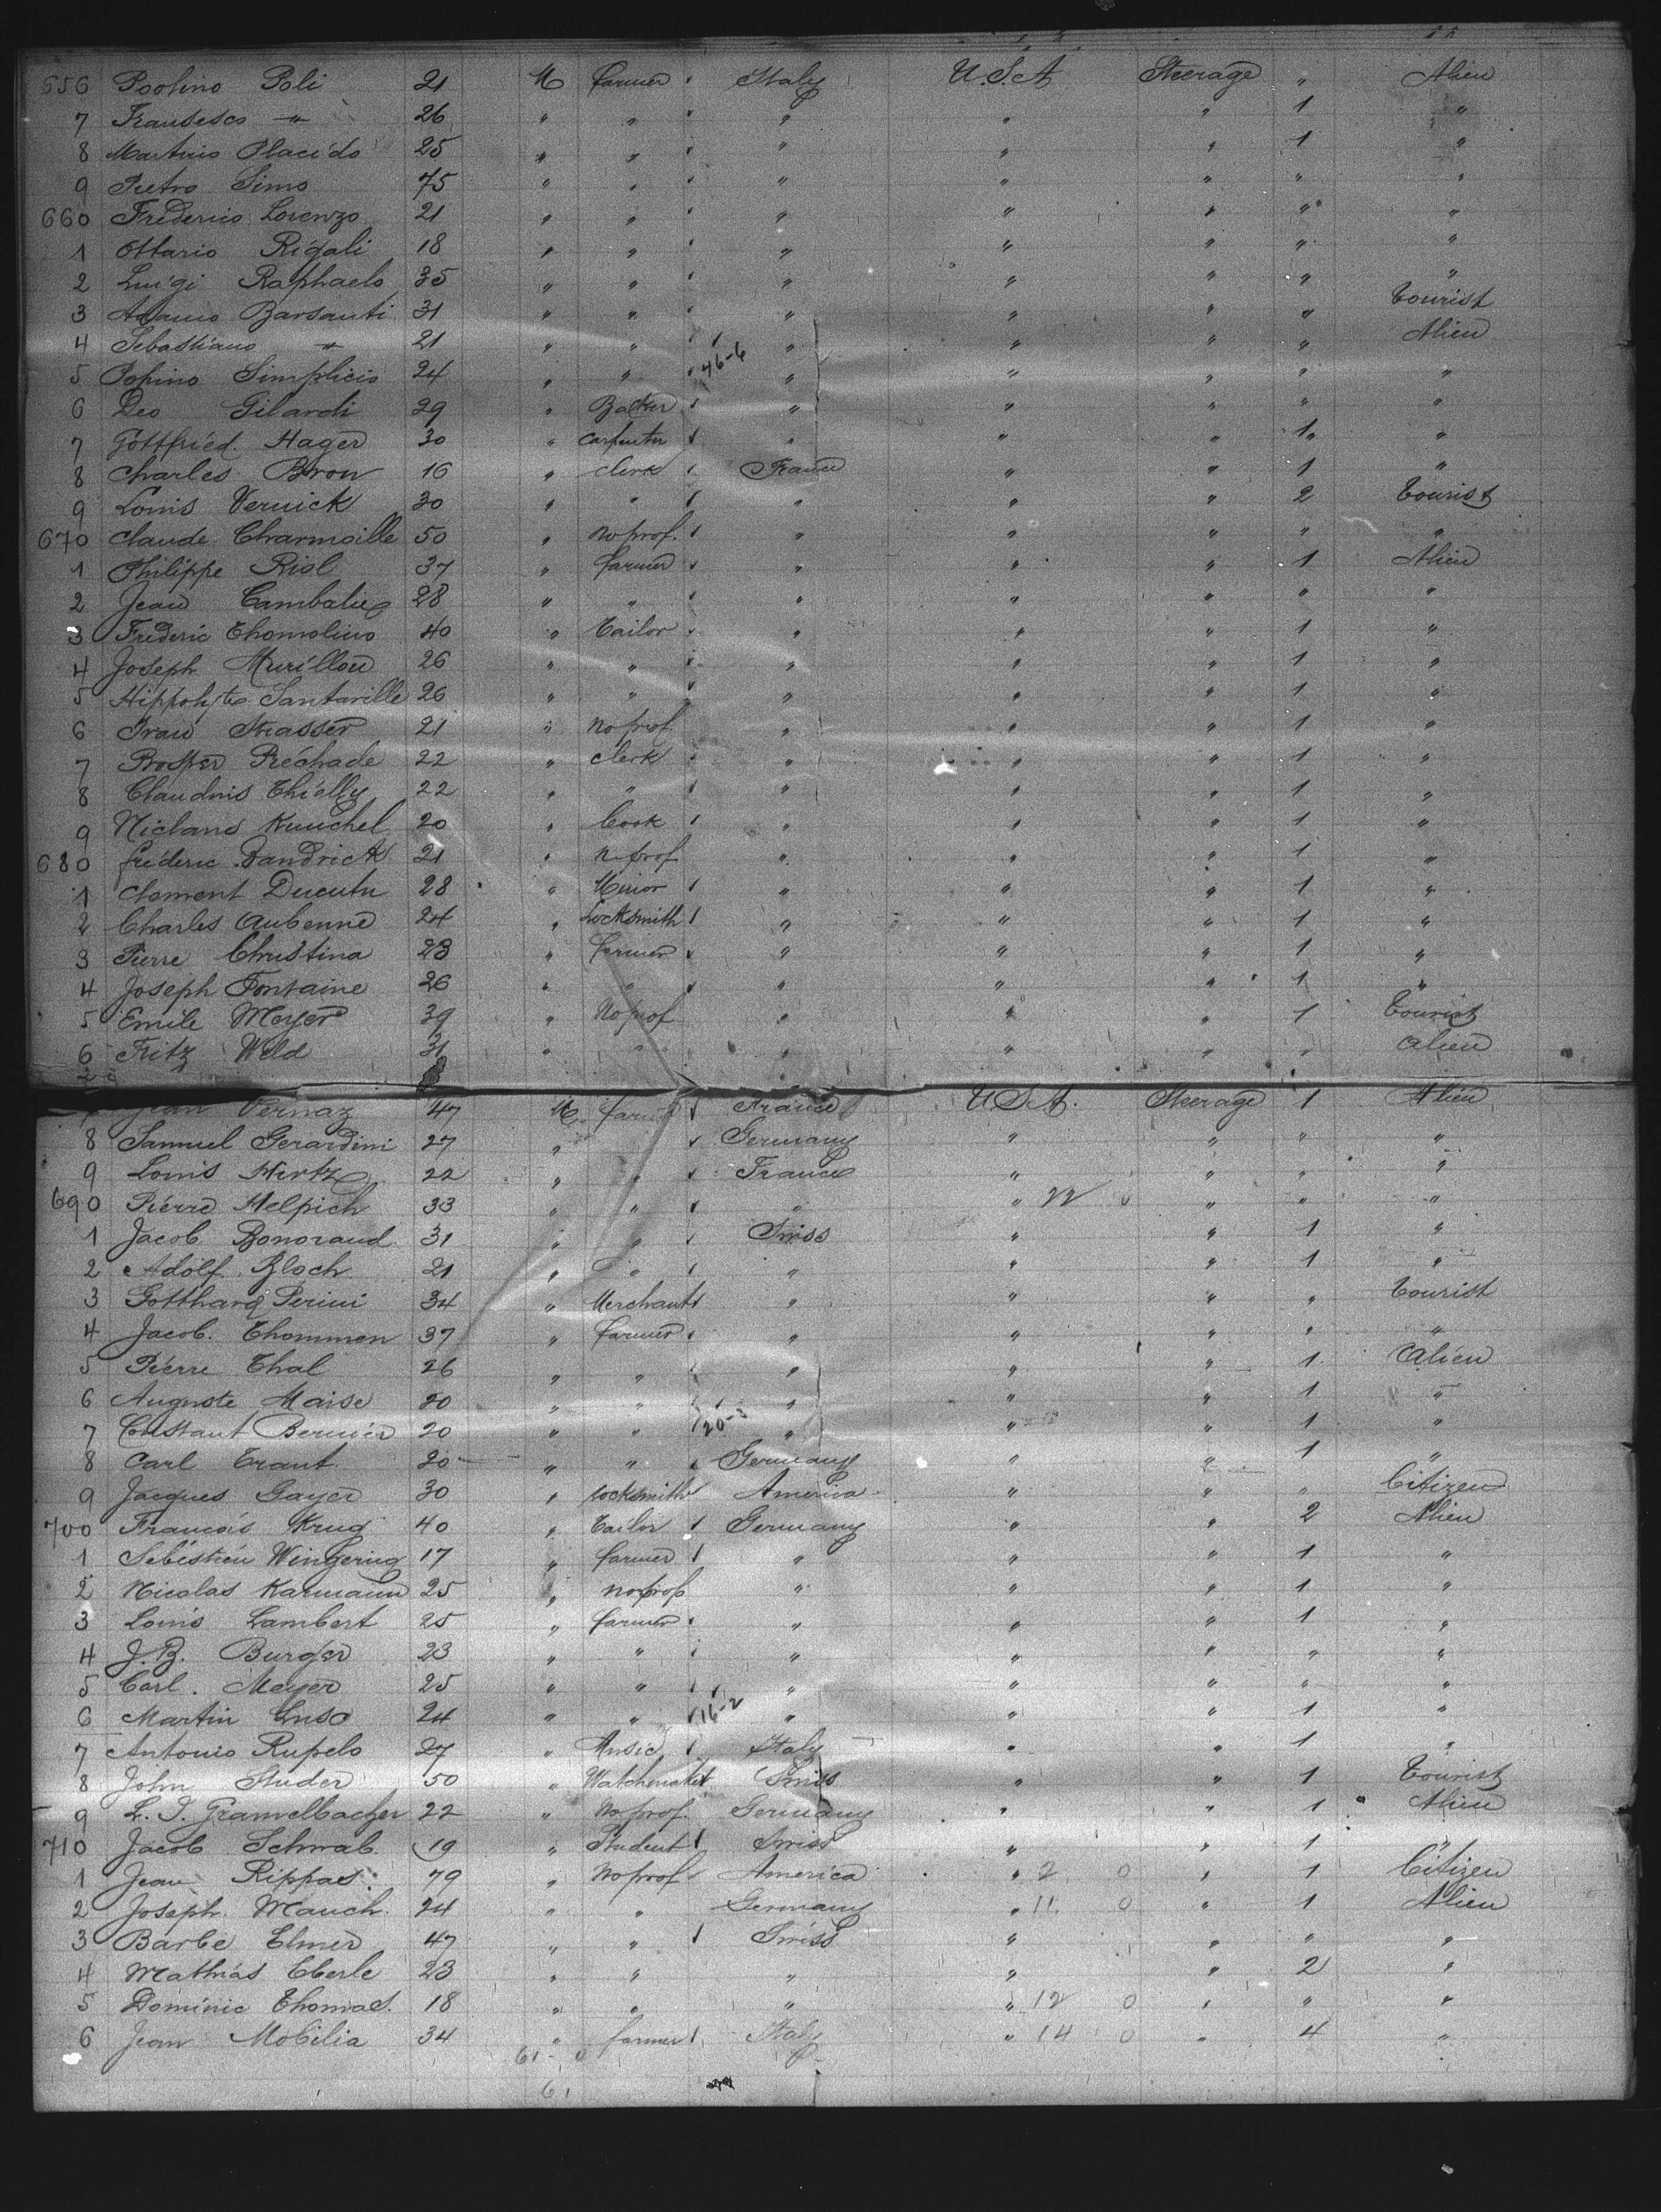 656 Paolino Poli 21 M farmer Italy U.S.A Steerage " Alien
7 Fransesco " 26 " " " " " 1 "
8 Martino Placido 25 " " " " " 1 "
9 Pietro Simo 75 " " " " " " "
660 Frederico Lorenzo 21 " " " " " " "
1 Ottario Rigali 18 " " " " " " "
2 Luigi Raphaelo 35 " " " " " " "
3 Adamo Barsanti 31 " " " " " " Tourist
4 Sebastiano " 21 " " " " " " Alien
5 Pofino Simplicio 24 " " 46-6 " " " " "
6 Leo Gilardi 29 " Backer " " " " "
7 Gottfried Hager 30 " Carpenter " " " 1" "
8 Charles Bron 16 " clerk France " " 1 "
9 Louis Vernick 30 " " " " " 2 Tourist
670 Claude Charmoille 50 " no prof. " " " " "
1 Philippe Riol 37 " farmer " " " 1 Alien
2 Jean Cambalie 28 " " " " " " "
3 Frederic Thomolino 40 " Tailor " " " 1 "
4 Joseph Murillon 26 " " " " " 1 "
5 Hippolyte Santaville 26 " " " " " 1 "
6 Iran Strasser 21 " no prof " " " 1 "
7 Préchade 22 " clerk " " " 1 "
8 Claudius Thielly 22 " " " " " 1 "
9 Niclans Kunchel 20 " Cook " " " 1 "
680 frederic Bandrick 21 " no prof " " " 1 "
1 Clement Ducutu 28 " Minor " " " 1 "
2 Charles Aubenne 24 " Locksmith " " " 1 "
3 Pierre Christina 23 " farmer " " " 1 "
4 Joseph Fontaine 26 " " " " " 1 "
5 Emile Meyer 39 " No prof " " " 1 Tourist
6 Fritz Wild 31 " " " " " " Alien
Jean Vernaz 47 M farmer France U.S.A. Steerage 1 Alien
8 Samuel Gerardini 27 " Germany " " " "
9 Louis Hertz 22 " " France " " " "
690 Pierre Helpich 33 " " " " 22 " " "
1 Jacob Bonorand 31 " " Swiss " " 1 "
2 Adolf Bloch 21 " " " " " 1 "
3 Gotthard Perini 34 " Merchant " " " " Tourist
4 Jacob. Thommen 37 " farmer " " " " "
5 Pierre Thal 26 " " " " " 1 Alien
6 Auguste Maise 20 " " " " " 1 "
7 Constant Bernier 20 " " 20-3 " " " 1 "
8 Carl Traut 20 " " Germany " " 1 "
9 Jacques Gayer 30 " Locksmith America " " " Citizen
700 Francois Krug 40 " Tailor Germany " " 2 Alien
1 Sebistien Wingering 17 " farmer " " " 1 "
2 Nicolas Karmann 25 " no prof " " " 1 "
3 Louis Lambert 25 " farmer " " " 1 "
4 J.B. Burger 23 " " " " " " "
5 Carl. Meyer 25 " " " " " " "
6 Martin Enso 24 " " 16-2 " " " 1 "
7 Antonio Rupelo 27 " Music Italy " " 1 "
8 John Studer 50 " Watchmaker Swiss " " 1 Tourist
9 L. I. Gramelbacher 22 " No prof. Germany " " 1 Alien
710 Jacob Schwab 19 " Student Swiss " " 1 "
1 Jean Rippas 79 " No prof America " 2 0 " 1 Citizen
2 Joseph Mauch 24 " " Germany " 11 0 " 1 Alien
3 Barbe Elmer 47 " " Swiss " " " "
4 Mathias Eberle 23 " " " " " 2 "
5 Dominic Thomas. 18 " " " " 12 0 " " "
6 Jean Mobilia 34 " farmer Italy " 14 0 " 4 "
61-0
61